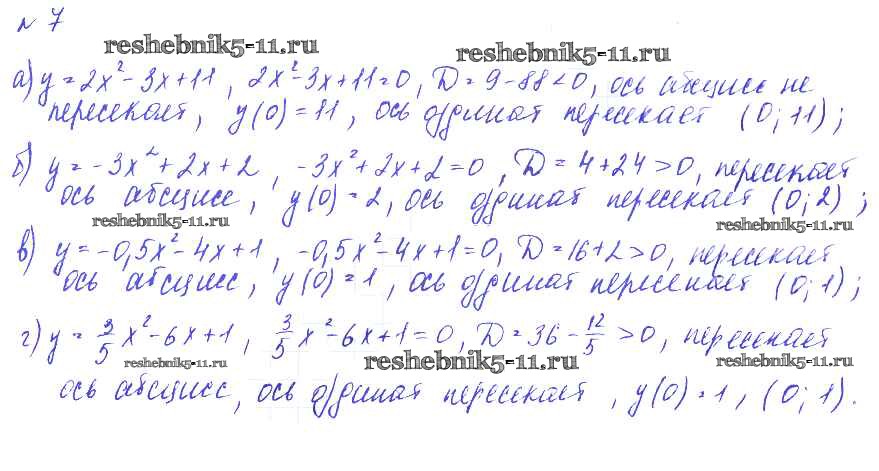 № 7
reshebnik5-11.ru
reshebnik5-11.ru
а) y = 2x² - 3x + 11, 2x² - 3x + 11 = 0, D = 9 - 88 < 0, ось абсцисс не
пересекает, y(0) = 11, ось ординат пересекает (0; 11);
б) y = -3x² + 2x + 2, -3x² + 2x + 2 = 0, D = 4 + 24 > 0, пересекает
ось абсцисс, y(0) = 2, ось ординат пересекает (0; 2);
reshebnik5-11.ru
reshebnik5-11.ru
в) y = -0,5x² - 4x + 1, -0,5x² - 4x + 1 = 0, D = 16 + 2 > 0, пересекает
ось абсцисс, y(0) = 1, ось ординат пересекает (0; 1);
г) y = 3/5 x² - 6x + 1, 3/5 x² - 6x + 1 = 0, D = 36 - 12/5 > 0, пересекает
reshebnik5-11.ru
reshebnik5-11.ru
reshebnik5-11.ru
ось абсцисс, ось ординат пересекает, y(0) = 1, (0; 1).